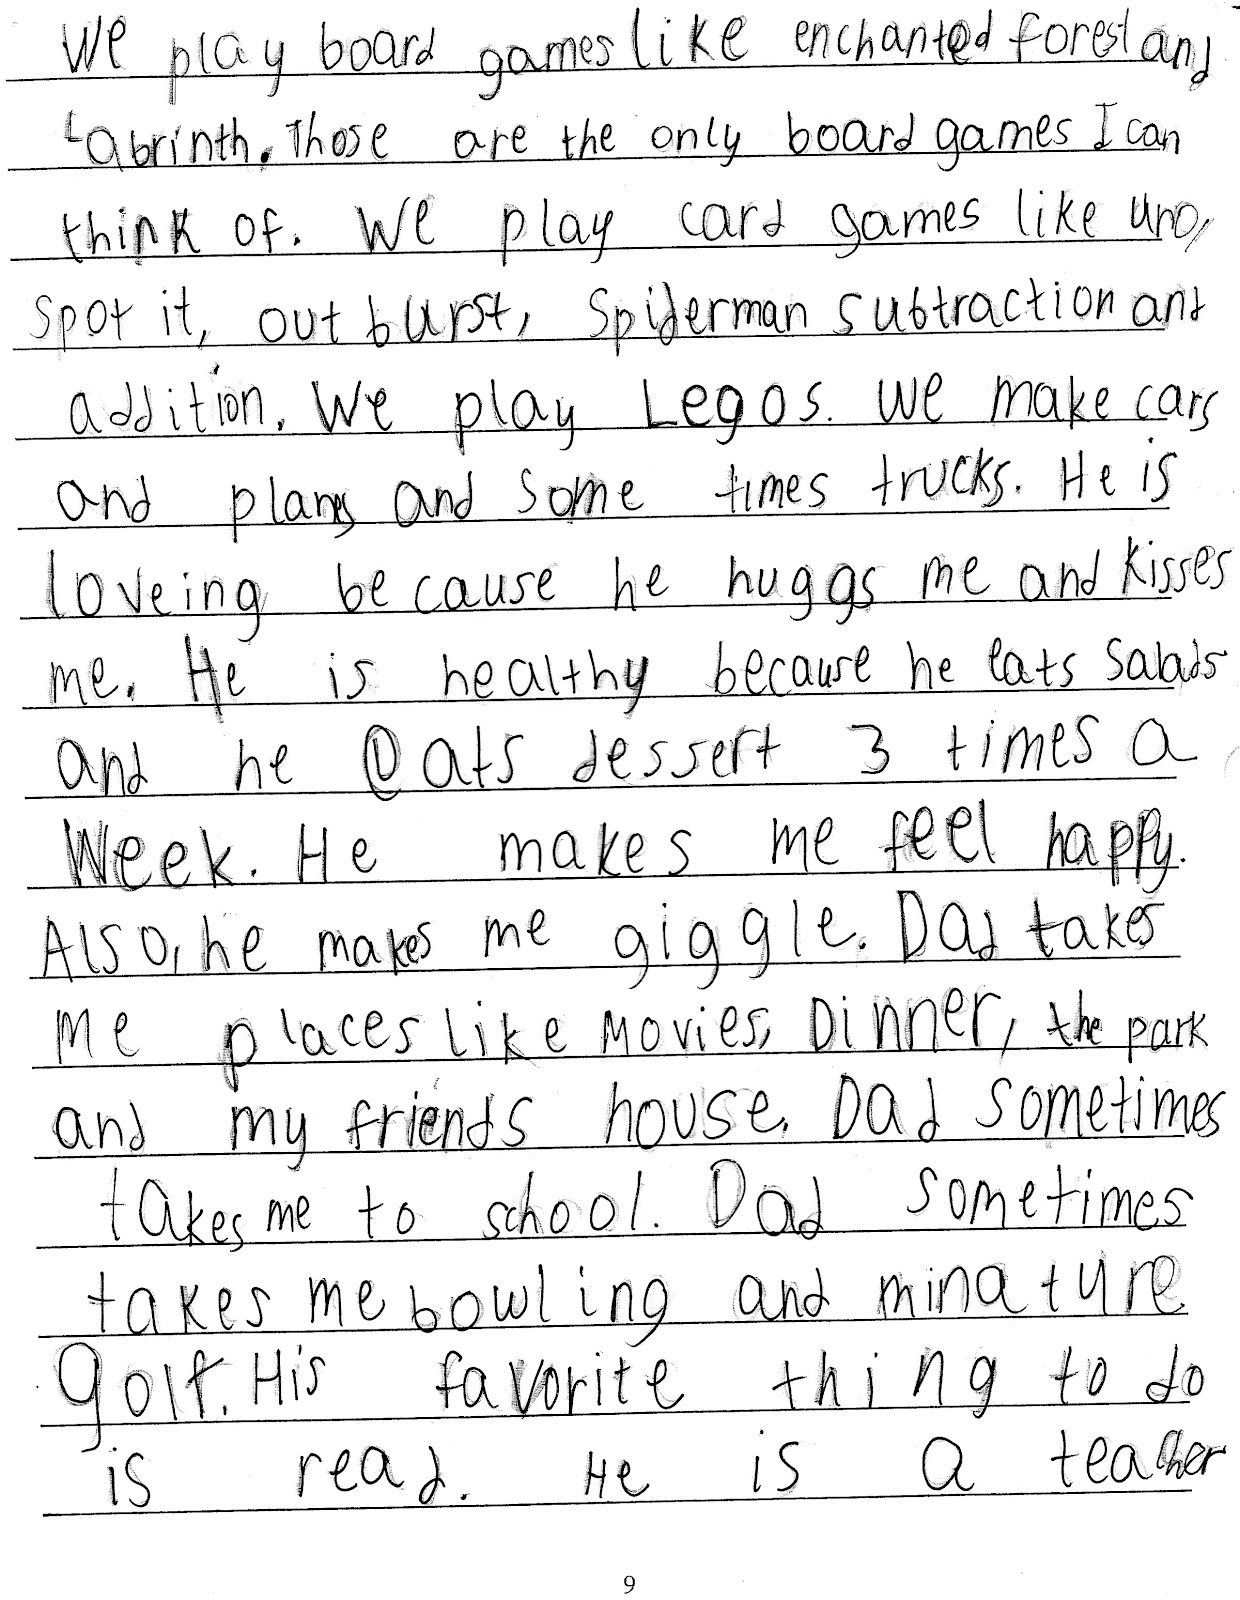 We play board games like enchanted forest and
Labrinth. Those are the only board games I can
think of. We play card games like uno,
spot it, out burst, Spiderman subtraction and
addition. We play Legos. We make cars
and planes and some times trucks. He is
loveing be cause he huggs me and kisses
me. He is healthy because he eats salads
and he eats dessert 3 times a
Week. He makes me feel happy.
Also, he makes me giggle. Dad takes
me places like Movies, Dinner, the park
and my friends house. Dad sometimes
takes me to school. Dad sometimes
takes me bowling and minature
golf. His favorite thing to do
is read. He is a teacher
9